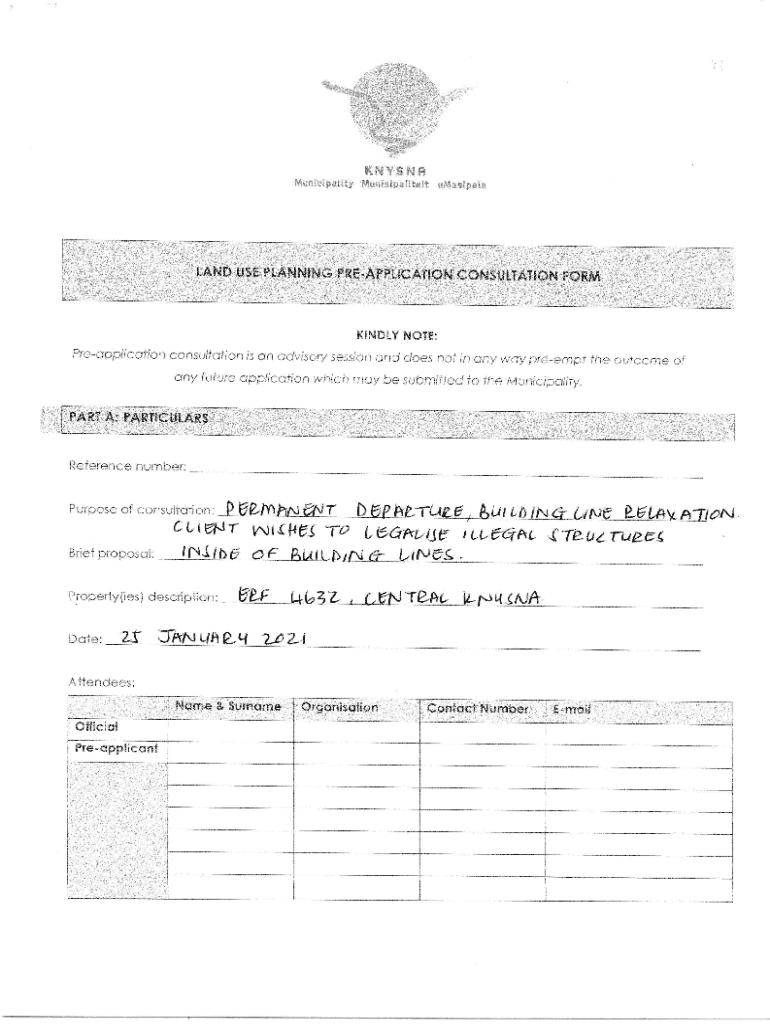 KNYSNA
Municipality Munisipaliteit uMasipala
LAND USE PLANNING PRE-APPLICATION CONSULTATION FORM
KINDLY NOTE:
Pre-application consultation is an advisory session and does not in any way pre-empt the outcome of
any future application which may be submitted to the Municipality.
PART A: PARTICULARS
Reference number:
Purpose of consultation: PERMANENT DEPARTURE, BUILDING LINE RELAXATION.
CLIENT WISHES TO LEGALISE ILLEGAL STRUCTURES
Brief proposal: INSIDE OF BUILDING LINES.
Property(ies) description: ERF 4632, CENTRAL KNYSNA
Date: 25 JANUARY 2021
Attendees:
Name & Surname Organisation Contact Number E-mail
Official
Pre-applicant